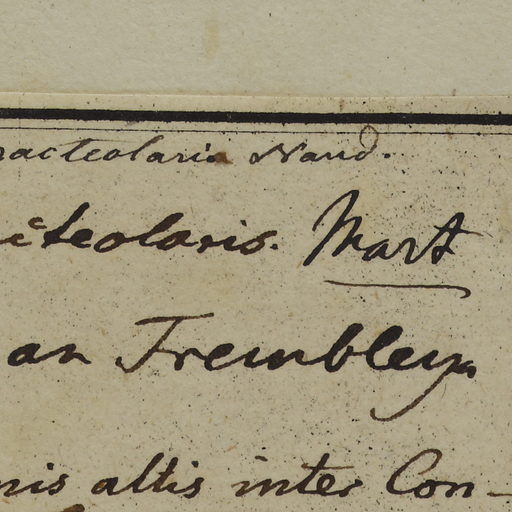 racteolaria Naud.
icteolaris. Mart
an Trembleya
nis altis inter Con-